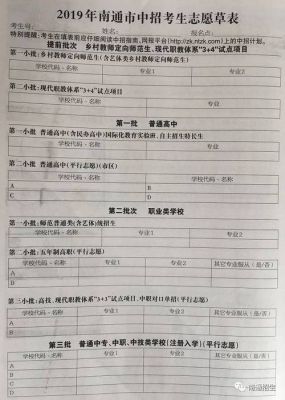 2019年南通市中招考生志愿草表
考生号: 姓名: 报名点:
特别提醒:考生在填表前应仔细阅读中招指南、网报平台(http://zk.ntzk.com)上的中招计划。
提前批次 乡村教师定向师范生、现代职教体系"3+4"试点项目
第一小批:乡村教师定向师范生(含艺体类乡村教师定向师范生)
学校代码、名称 专业1 专业2
第二小批:现代职教体系"3+4"试点项目
学校代码、名称 专业
第一批 普通高中
第一小批 普通高中(含民办高中)国际化教育实验班、自主招生特长生
学校代码、名称
第二小批 普通高中(平行志愿)(市区)
学校代码、名称 学校代码、名称
A B
C D
第二批次 职业类学校
第一小批:师范普通类(含艺体)统招生
学校代码、名称 专业1 专业2
第二小批:五年制高职(平行志愿)
学校代码、名称 专业1 专业2 其它专业服从(是/否)
A
B
C
第三小批:高技、现代职教体系"3+3"试点项目、中职对口单招(平行志愿)
学校代码、名称 专业1 专业2 其它专业服从(是/否)
A
B
C
第三批 普通中专、中职、中技类学校(注册入学)(平行志愿)
学校代码、名称 专业1 专业2 其它专业服从(是/否)
A
B
C
D